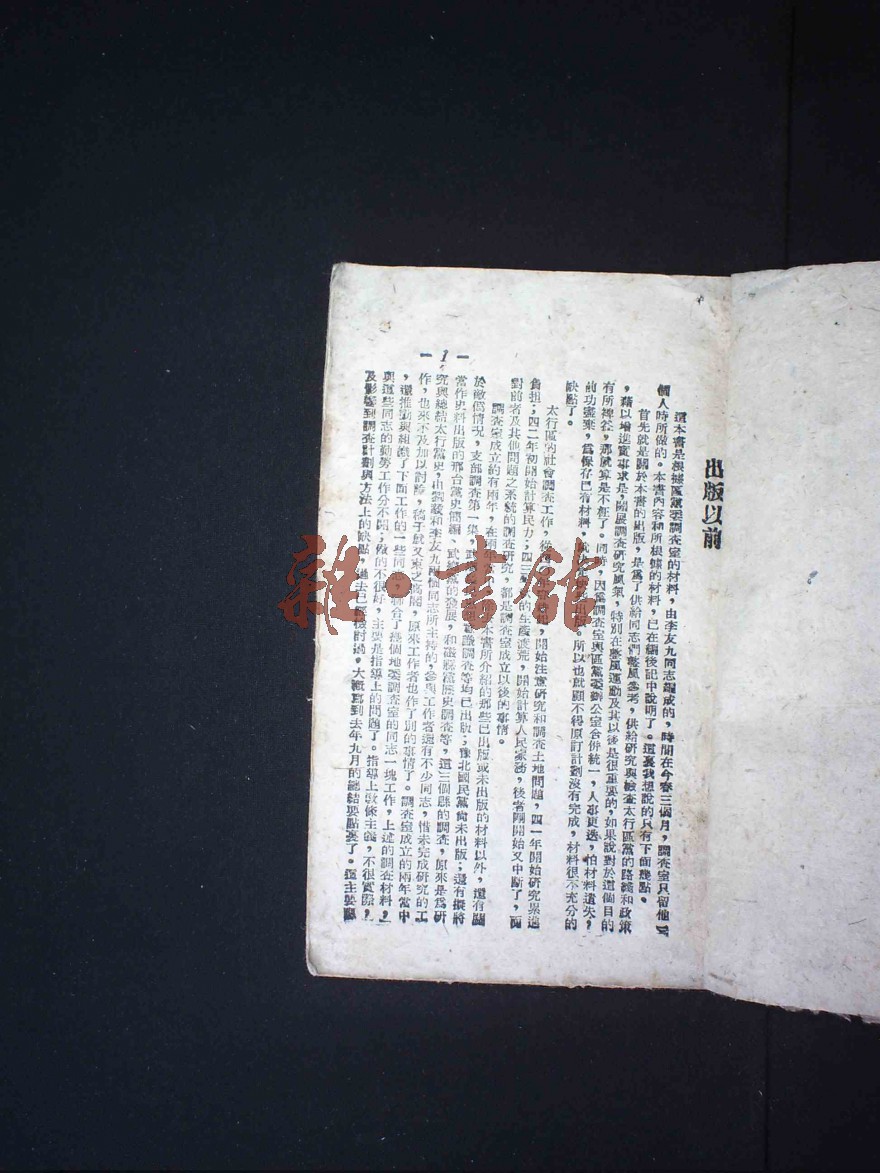 出版以前
這本書是根據區黨委調查室的材料，由李友九同志編成的，時間在今春三個月，調查室只留他
個人時所做的。本書內容和所根據的材料，已在編後記中說明了。這裏我想說的只有下面幾點。
首先就是關於本書的出版，是爲了供給同志們整風參考，供給研究與檢查太行區黨的路線和政策
，藉以增進實事求是，開展調查研究風氣，特別在整風運動及其以後是很重要的，如果說對於這個目的
有所裨益，那就算是不枉了。同時，因爲調查室與區黨委辦公室合併統一，人事更迭，怕材料遺失，
前功盡棄，爲保存已有材料，出版。所以也就顧不得原訂計劃沒有完成，材料很不充分的
缺點了。
太行區的社會調查工作，開始注意研究和調查土地問題，四一年開始研究累進
負担；四二年初開始計算民力；四三的生產渡荒，開始計算人民家務，後者剛開始又中斷了，而
對前者及其他問題之系統的調查研究，都是調查室成立以後的事情。
調查室成立約有兩年，在兩年本書所介紹的那些已出版或未出版的材料以外，還有關
於敵僞情況，支部調查第一集，調查等均已出版；冀北國民黨尚未出版；還有擬將
當作史料出版的邢台黨史簡編，武的發展，和磁縣黨歷史調查等，這三個縣的調查，原來是爲研
究與總結太行黨史，由和李友九兩個同志所主持的，參與工作者還有不少同志，惜未完成研究的工
作，也來不及加以討論，稿子就又束之高閣，原來工作者也作了別的事情了。調查室成立的兩年當中
，還推動與組織了下面工作的一些同志，聯合了幾個地委調查室的同志一塊工作，上述的調查材料，
與這些同志的勤勞工作分不開；做的不很好，主要是指導上的問題了。指導上教條主義，不很實際，
及影響到調查計劃與方法上的缺點，過去已檢討過。大概寫到去年九月的總結要點裏了。還主要
— 1 —
雜·書館